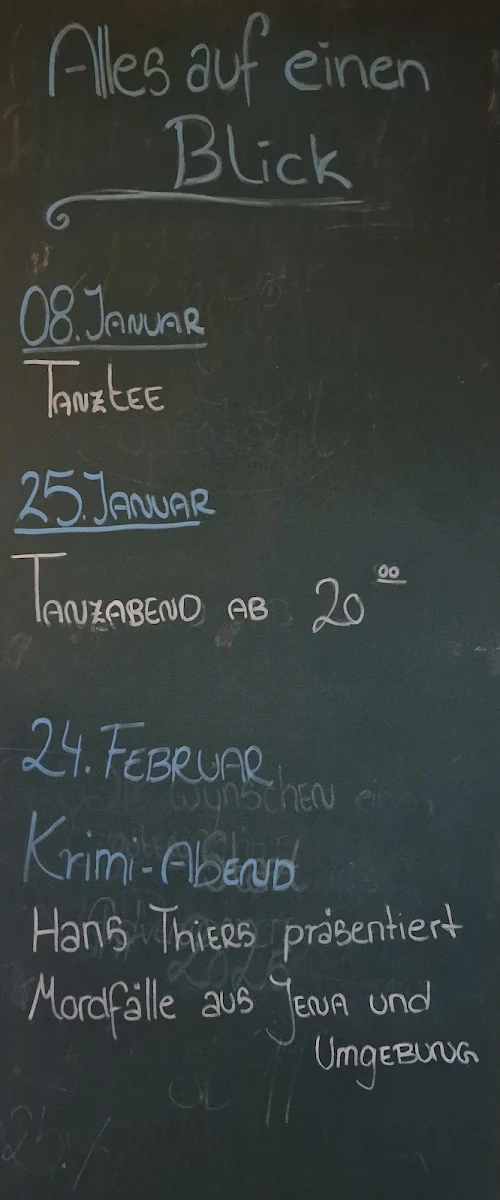 Alles auf einen
Blick
08. Januar
Tanztee
25. Januar
Tanzabend ab 20 00
24. Februar
wünschen
Krimi-Abend
Hans Thiers präsentiert
Mordfälle aus Jena und
Umgebung